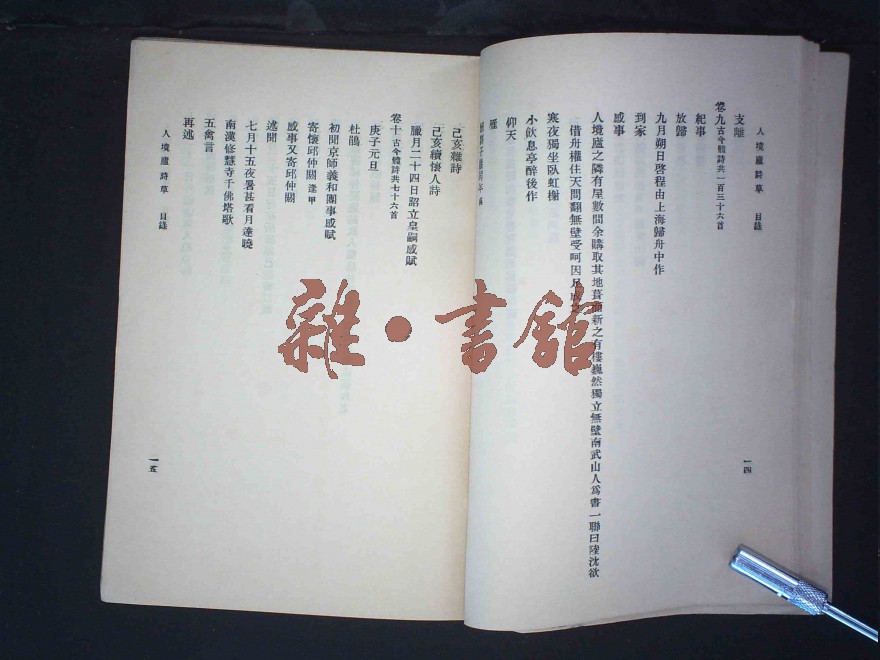 人境廬詩草　目錄
一四
支離
卷九 古今體詩共一百三十六首
紀事
放歸
九月朔日啓程由上海歸舟中作
到家
感事
人境廬之隣有屋數間余購取其地葺而新之有樓巍然獨立無壁南武山人為書一聯曰陸沈欲
借舟權住天問翻無壁受呵因足成
寒夜獨坐臥虹榭
小飲息亭醉後作
仰天
雁
己亥雜詩
己亥續懷人詩
臘月二十四日詔立皇嗣感賦
卷十 古今體詩共七十六首
庚子元旦
杜鵑
初聞京師義和團事感賦
寄懷邱仲閼 逢甲
感事又寄邱仲閼
述聞
七月十五夜暑甚看月達曉
南漢修慧寺千佛塔歌
五禽言
再述
人境廬詩草　目錄
一五
雜·書館